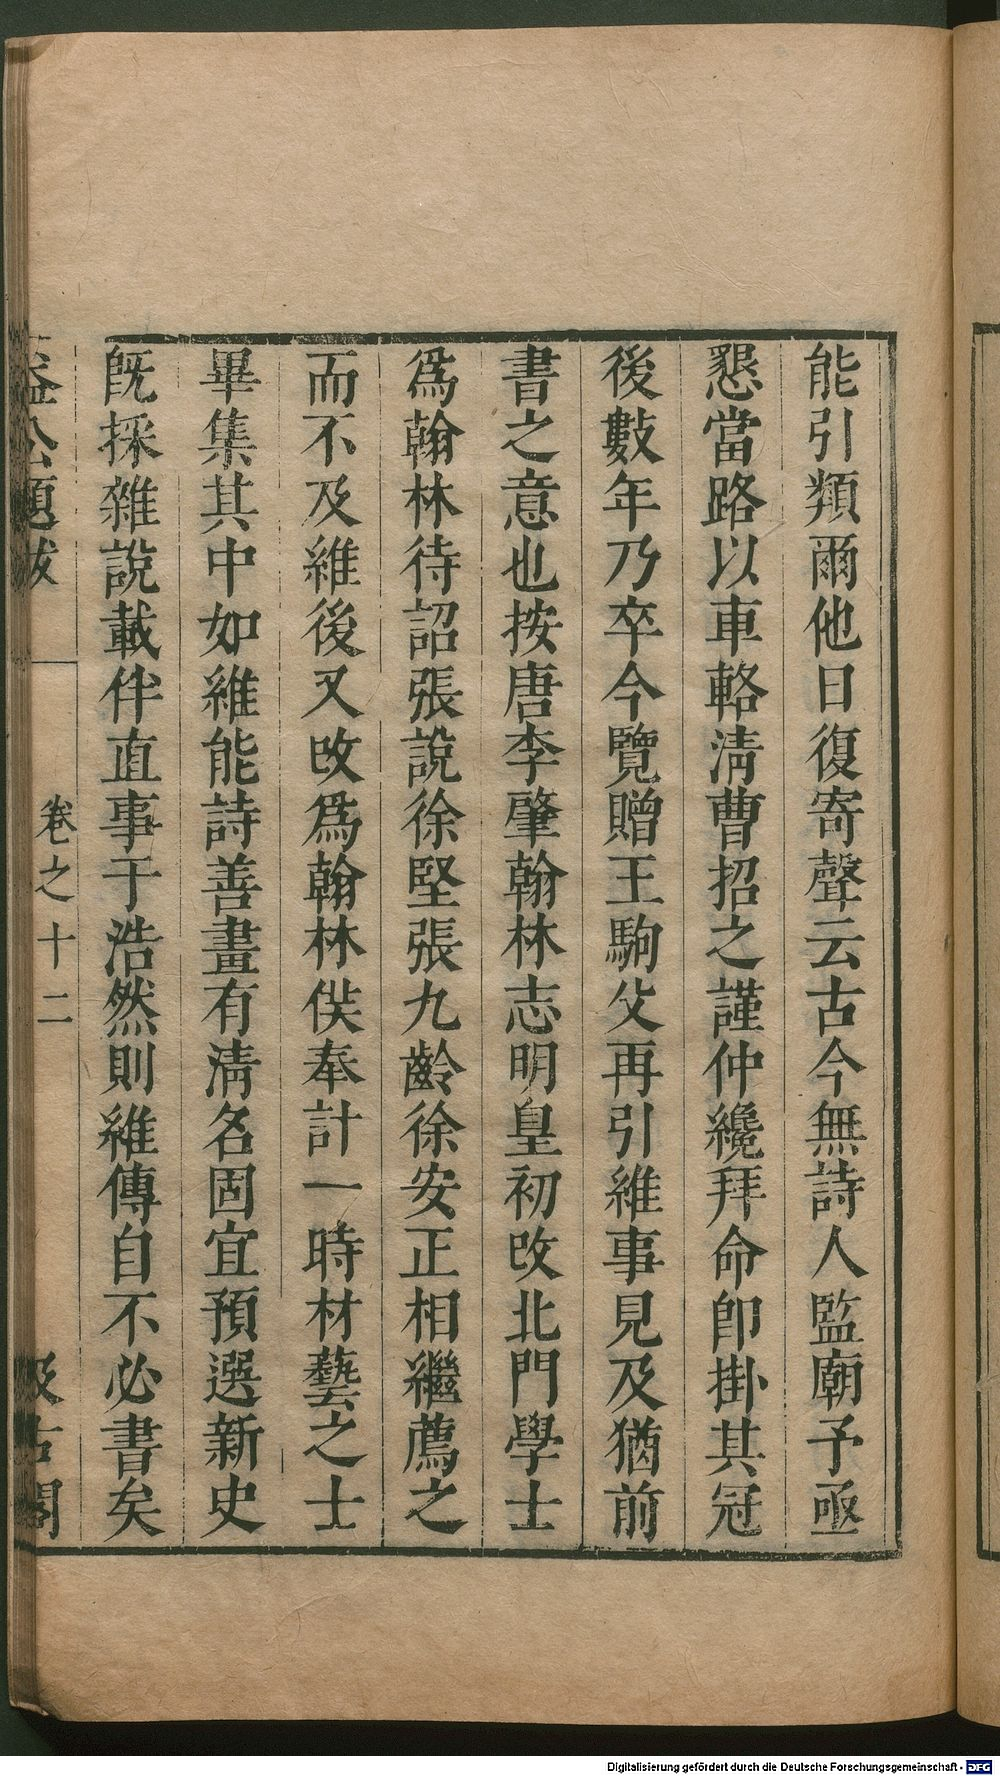 能引類爾他日復寄聲云古今無詩人監廟予亟
懇當路以車輅淸曹招之謹仲纔拜命卽掛其冠
後數年乃卒今覽贈王駒父再引維事見及猶前
書之意也按唐李肇翰林志明皇初改北門學士
爲翰林待詔張說徐堅張九齡徐安正相繼薦之
而不及維後又改爲翰林供奉計一時材藝之士
畢集其中如維能詩善畫有淸名固宜預選新史
旣採雜說載伴直事于浩然則維傳自不必書矣
益公題跋
卷之十二
汲古閣
Digitalisierung gefördert durch die Deutsche Forschungsgemeinschaft - DFG